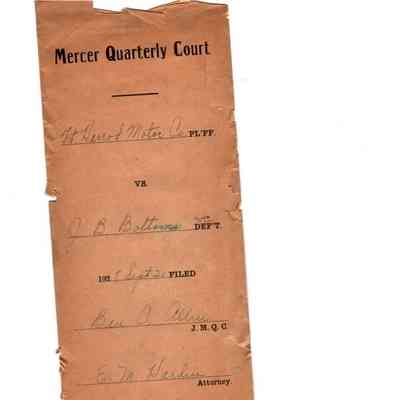 Mercer Quarterly Court
Motor Co PL'FF
VS.
B Bottoms DEF'T.
192 Sept FILED
Ben
J. M. Q. C.
E. M. Hardin
Attorney.